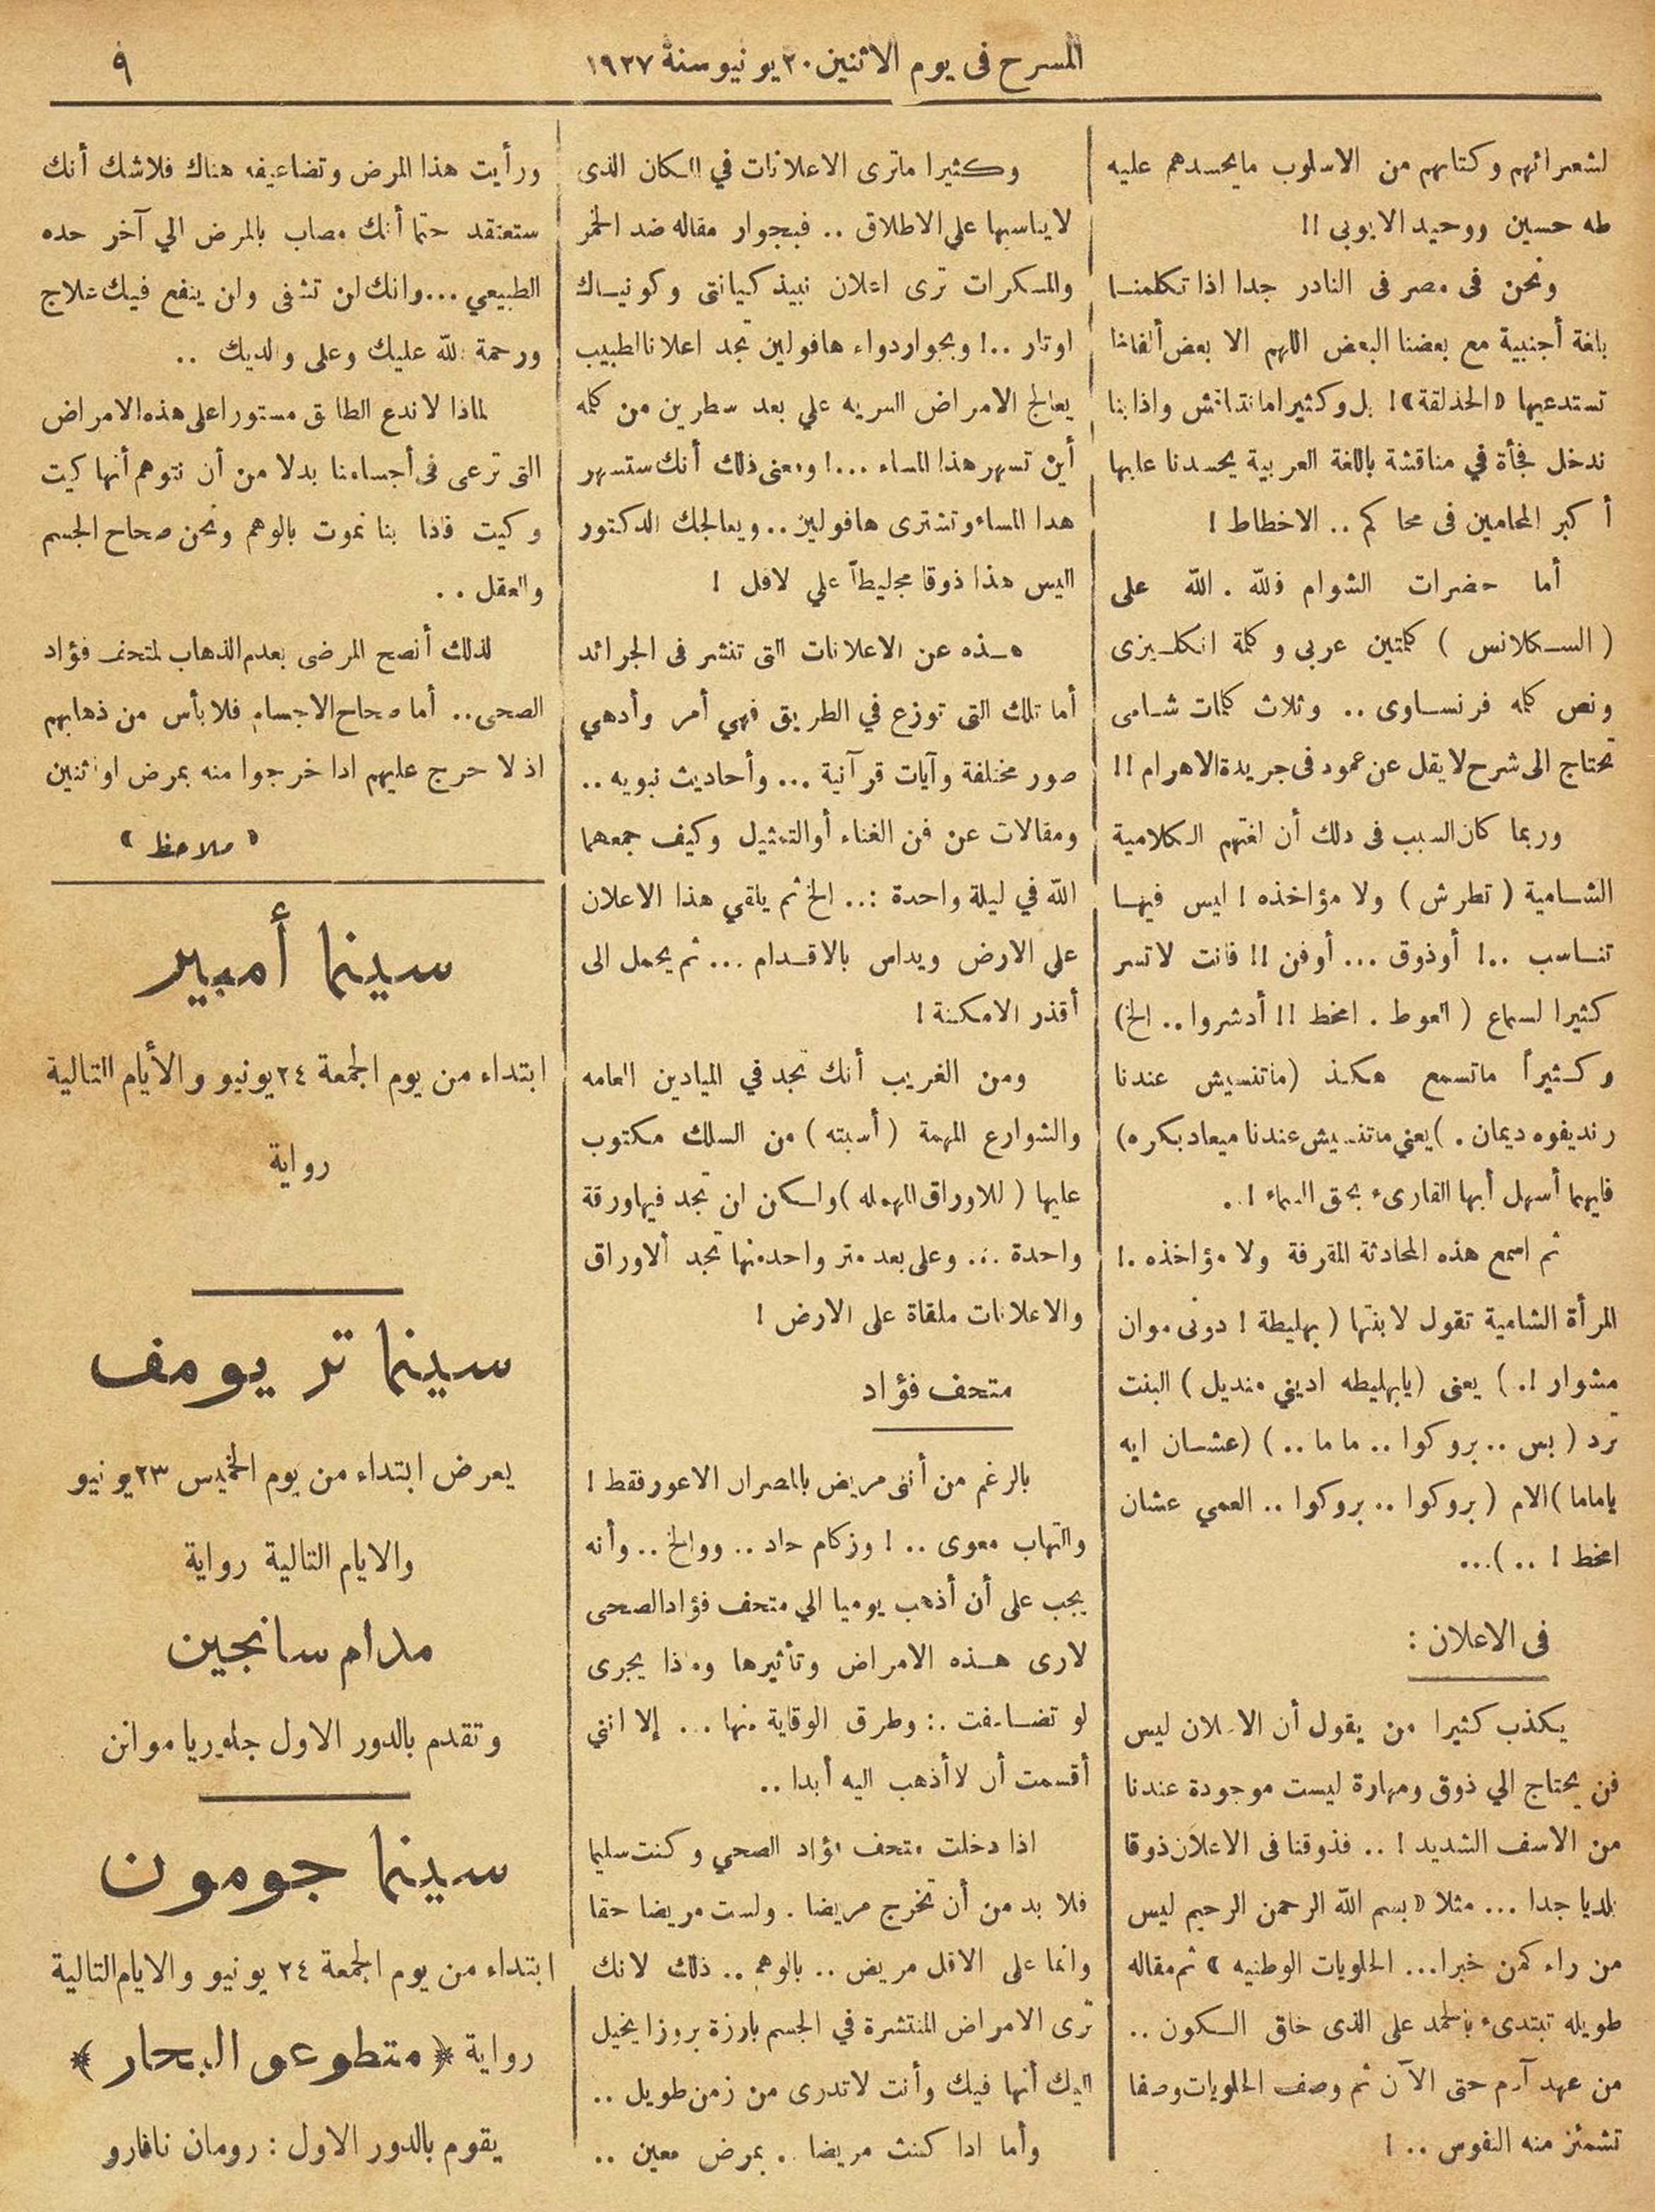 المسرح فى يوم الاثنين ٢٠ يونيو سنة ١٩٢٧
٩
لشعرائهم وكتابهم من الاسلوب مايحسدهم عليه
طه حسين ووحيد الايوبى !!
ونحن فى مصر فى النادر جدا اذا تكلمنا
بلغة أجنبية مع بعضنا البعض اللهم الا بعض ألفاظا
تستدعيها «الحذلقة»! بل وكثيرا مانتناقش واذا بنا
ندخل فجأة في مناقشة باللغة العربية يحسدنا عليها
أكبر المحامين فى محاكم .. الاخطاط !
أما حضرات الشوام فلله . الله على
( السكلانس ) كلمتين عربى وكلمة انكليزى
ونص كلمه فرنساوى .. وثلاث كلمات شامى
تحتاج الى شرح لا يقل عن عمود فى جريدة الاهرام !!
وربما كان السبب فى دلك أن لغتهم الكلامية
الشامية ( تطرش ) ولا مؤاخذه ! ليس فيها
تناسب ..! أوذوق ... أوفن !! فانت لاتسر
كثيرا لسماع ( العوط . امخط !! أدشروا .. الخ)
وكثيراً ماتسمع هكذ (ماتنسيش عندنا
رنديفوه ديمان . )يعني ماتنسيش عندنا ميعاد بكره)
فايهما أسهل أيها القارىء بحق السماء !.
ثم اسمع هذه المحادثة المقرفة ولا مؤاخذه .!
المرأة الشامية تقول لابنتها ( بهليطة ! دونى موان
مشوار !. ) يعنى (يابهليطه اديني منديل ) البنت
ترد ( بس .. بروكوا .. ما ما .. ) (عشان ايه
ياماما )الام ( بروكوا .. بروكوا .. العمي عشان
امخط ! .. )...
فى الاعلان :
يكذب كثيرا من يقول أن الاعلان ليس
فن يحتاج الي ذوق ومهارة ليست موجودة عندنا
من الاسف الشديد ! .. فذوقنا فى الاعلان ذوقا
بلديا جدا ... مثلا «بسم الله الرحمن الرحيم ليس
من راء كمن خبرا... الحلويات الوطنيه » ثم مقاله
طويله تبتدىء بالحمد على الذى خلق الكون ..
من عهد آدم حتى الآن ثم وصف الحلويات وصفا
تشمئز منه النفوس .. !
وكثيرا ماترى الاعلانات في المكان الذى
لا يناسبها علي الاطلاق .. فبجوار مقاله ضد الخمر
والمسكرات ترى اعلان نبيذ كيانتى وكونياك
اوتار ..! وبجوار دواء هافولين تجد اعلانا لطبيب
يعالج الامراض السريه علي بعد سطرين من كلمه
أين تسهر هذا المساء ...! ومعنى ذلك أنك ستسهر
هدا المساء وتشترى هافولين .. ويعالجك الدكتور
اليس هذا ذوقا مجليطاً علي لاقل !
هذه عن الاعلانات التى تنشر فى الجرائد
أما تلك التى توزع في الطريق فهي أمر وأدهي
صور مختلفة وآيات قرآنية ... وأحاديث نبويه ..
ومقالات عن فن الغناء أوالتمثيل وكيف جمعهما
الله في ليلة واحدة :.. الخ ثم يلقي هذا الاعلان
علي الارض ويداس بالاقدام ... ثم يحمل الى
أقذر الامكنة !
ومن الغريب أنك تجد في الميادين العامه
والشوارع المهمة ( أسبته ) من السلك مكتوب
عليها ( للاوراق المهمله )ولكن لن تجد فيها ورقة
واحدة ... وعلى بعد متر واحد منها تجد الاوراق
والاعلانات ملقاة على الارض !
متحف فؤاد
بالرغم من أننى مريض بالمصران الاعور فقط !
والتهاب معوى .. ! وزكام حاد .. ووالخ .. وأنه
يجب على أن أذهب يوميا الي متحف فؤاد الصحى
لارى هذه الامراض وتأثيرها وماذا يجرى
لو تضاعفت .: وطرق الوقاية منها .. إلا انني
أقسمت أن لا أذهب اليه أبدا ..
اذا دخلت متحف فؤاد الصحي وكنت سليما
فلا بد من أن تخرج مريضا . ولست مريضا حقا
وانما على الاقل مريض .. بالوهم .. ذلك لانك
ترى الامراض المنتشرة في الجسم بارزة بروزا يخيل
اليك أنها فيك وأنت لا تدرى من زمن طويل ..
وأما ادا كنت مريضا .. بمرض معين ..
ورأيت هذا المرض وتضاعيفه هناك فلاشك أنك
ستعتقد حتما أنك مصاب بالمرض الي آخر حده
الطبيعي ... وانك لن تشفى ولن ينفع فيك علاج
ورحمة الله عليك وعلى والديك ..
لماذا لا ندع الطابق مستورا على هذه الامراض
التى ترعى فى أجسامنا بدلا من أن نتوهم أنها كيت
وكيت فاذا بنا نموت بالوهم ونحن صحاح الجسم
والعقل ..
لذلك أنصح المرضى بعدم الذهاب لمتحف فؤاد
الصحى .. أما صحاح الاجسام فلا بأس من ذهابهم
اذ لا حرج عليهم ادا خرجوا منه بمرض او اثنين
« ملاحظ »
سينما أمبير
ابتداء من يوم الجمعة ٢٤ يونيو والأيام التالية
رواية
سينما تريومف
يعرض ابتداء من يوم الخميس ٢٣ يونيو
والايام التالية رواية
مدام سانجين
وتقدم بالدور الاول جلوريا موانن
سينما جومون
ابتداء من يوم الجمعة ٢٤ يونيو والايام التالية
رواية ﴿ متطوعو البحار ﴾
يقوم بالدور الاول : رومان نافارو